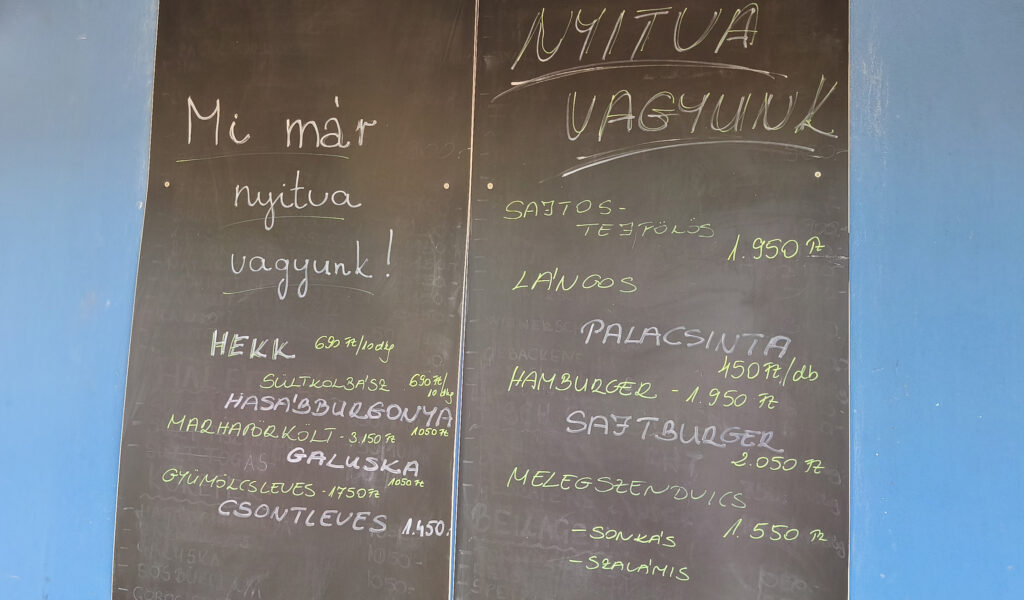 Mi már
nyitva
vagyunk!
HEKK 690 Ft/10dkg
SÜLTKOLBÁSZ 690 Ft/
10 dkg
HASÁBBURGONYA
1050 Ft
MARHAPÖRKÖLT - 3.150 Ft
GALUSKA
1050 Ft
GYÜMÖLCSLEVES - 1750 Ft
CSONTLEVES 1.450.-
NYITVA
VAGYUNK
SAJTOS-
TEJFÖLÖS
1.950 Ft
LÁNGOS
PALACSINTA
450 Ft/db
HAMBURGER - 1.950 Ft
SAJTBURGER
2.050 Ft
MELEGSZENDVICS
1.550 Ft
- SONKÁS
- SZALÁMIS